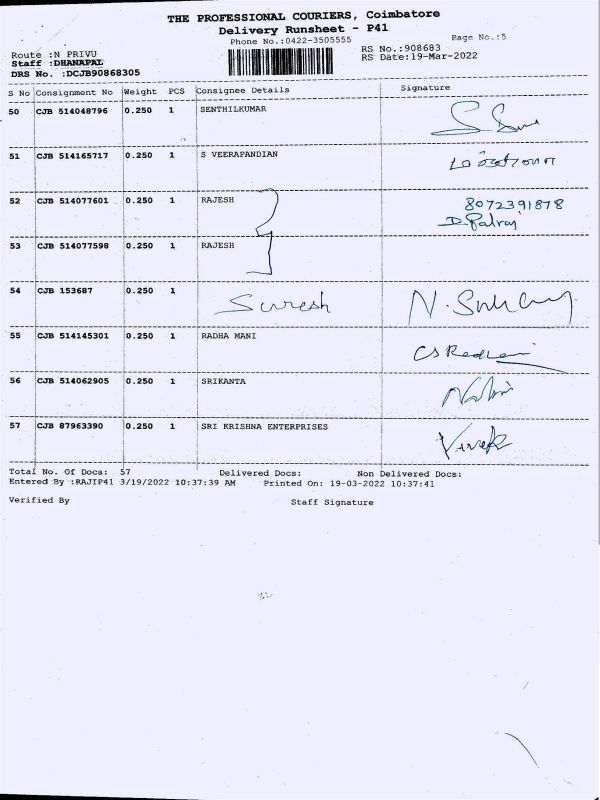 THE PROFESSIONAL COURIERS, Coimbatore
Delivery Runsheet - P41
Phone No.:0422-3505555
Page No.:5
Route :N PRIVU
RS No.:908683
Staff :DHANAPAL
RS Date:19-Mar-2022
DRS No. :DCJB90868305
S No Consignment No Weight PCS Consignee Details Signature
50 CJB 514048796 0.250 1 SENTHILKUMAR
51 CJB 514165717 0.250 1 S VEERAPANDIAN
52 CJB 514077601 0.250 1 RAJESH 8072391878
D.Palraj
53 CJB 514077598 0.250 1 RAJESH
54 CJB 153687 1 Suresh
55 CJB 514145301 0.250 1 RADHA MANI
56 CJB 514062905 0.250 1 SRIKANTA
57 CJB 87963390 0.250 1 SRI KRISHNA ENTERPRISES Vivek
Total No. Of Docs: 57 Delivered Docs: Non Delivered Docs:
Entered By :RAJIP41 3/19/2022 10:37:39 AM Printed On: 19-03-2022 10:37:41
Verified By Staff Signature